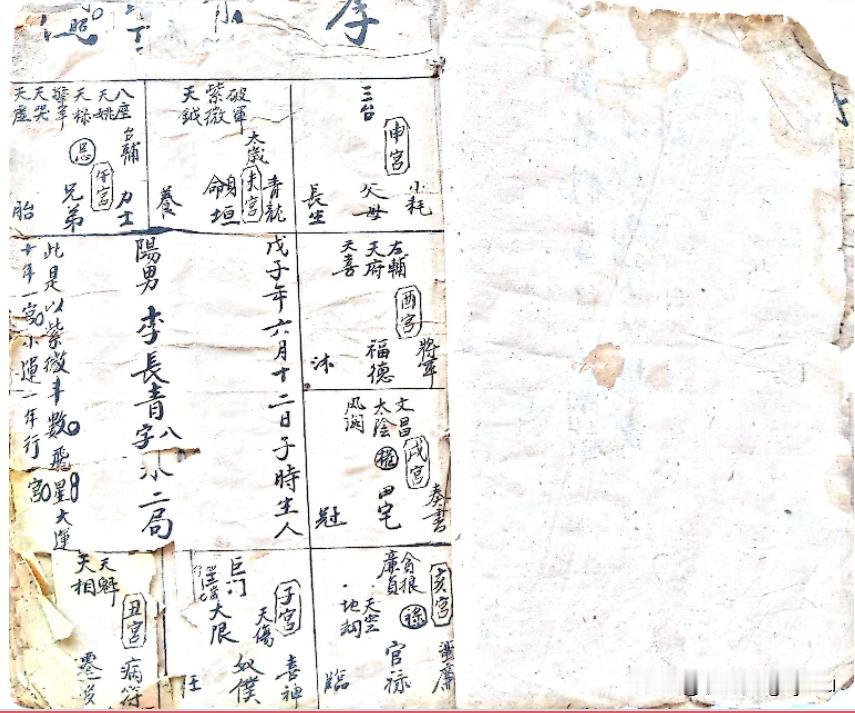 李
照
三台
申宮
小耗
父母
長生
破軍
紫微
天鉞
太歲
未宮
青龍
身
命垣
養
八座
天姚
天祿
天哭
天虛
台輔
忌
午宮
力士
兄弟
胎
右輔
天府
天喜
酉宮
將軍
福德
沐
文昌
太陰
風閣
權
戌宮
奏書
田宅
冠
貪狼
廉貞
亥宮
祿
天空
地刼
官祿
臨
巨门
子宮
天傷
大限
喜神
奴僕
旺
天魁
天相
丑宮
病符
戊子年六月十二日子時生人
陽男 李長青八字 水二局
此是以紫微斗數飛星大運
十年一宮小運一年行一宮